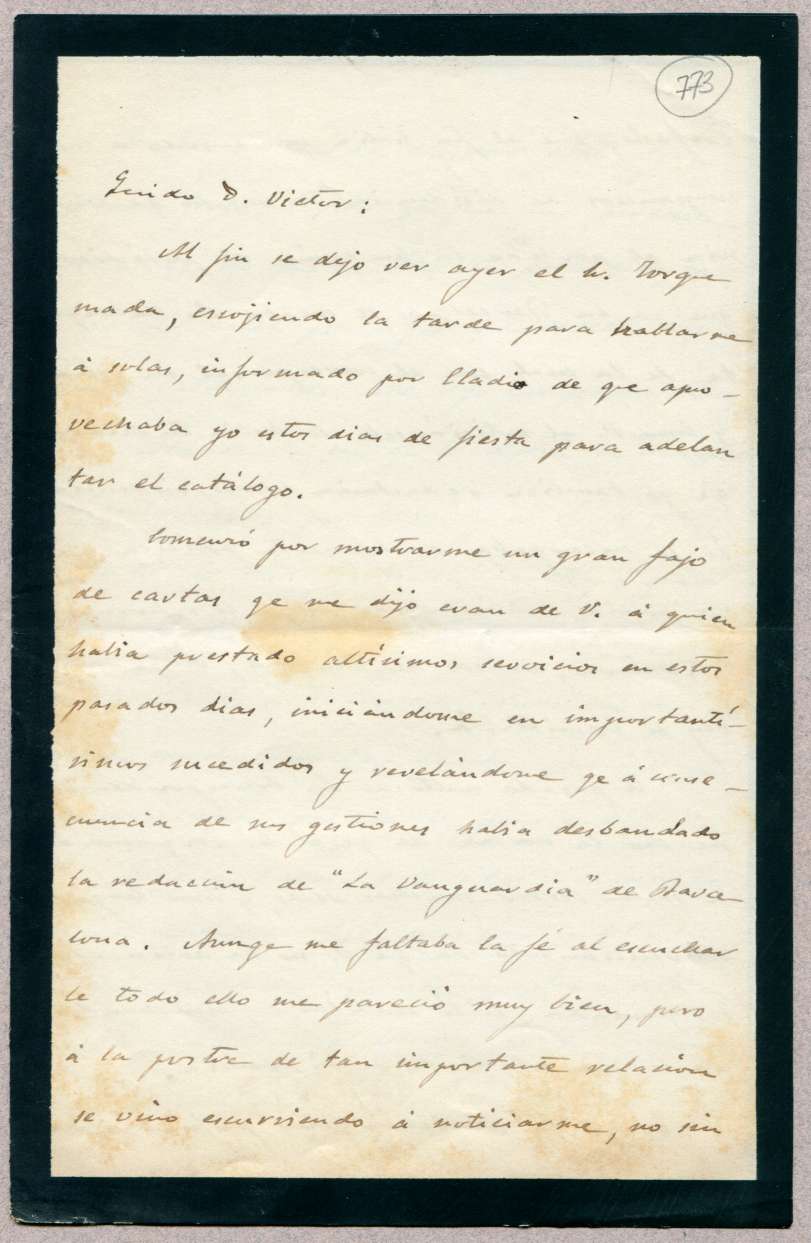 773
Querido D. Victor:
Al fin se dejó ver ayer el Sr. Torque
mada, escojiendo la tarde para hablarme
á solas, informado por Lladió de que apro-
vechaba yo estos dias de fiesta para adelan
tar el catálogo.
Comenzó por mostrarme un gran fajo
de cartas qe me dijo eran de V. á quien
habia prestado altísimos servicios en estos
pasados dias, iniciándome en importantí-
simos sucedidos y revelándome qe á conse-
cuencia de sus gestiones habia desbandado
la redacción de "La Vanguardia" de Barce
lona. Aunqe me faltaba la fé al escuchar
le todo ello me pareció muy bien, pero
á la postre de tan importante relación
se vino escurriendo á noticiarme, no sin